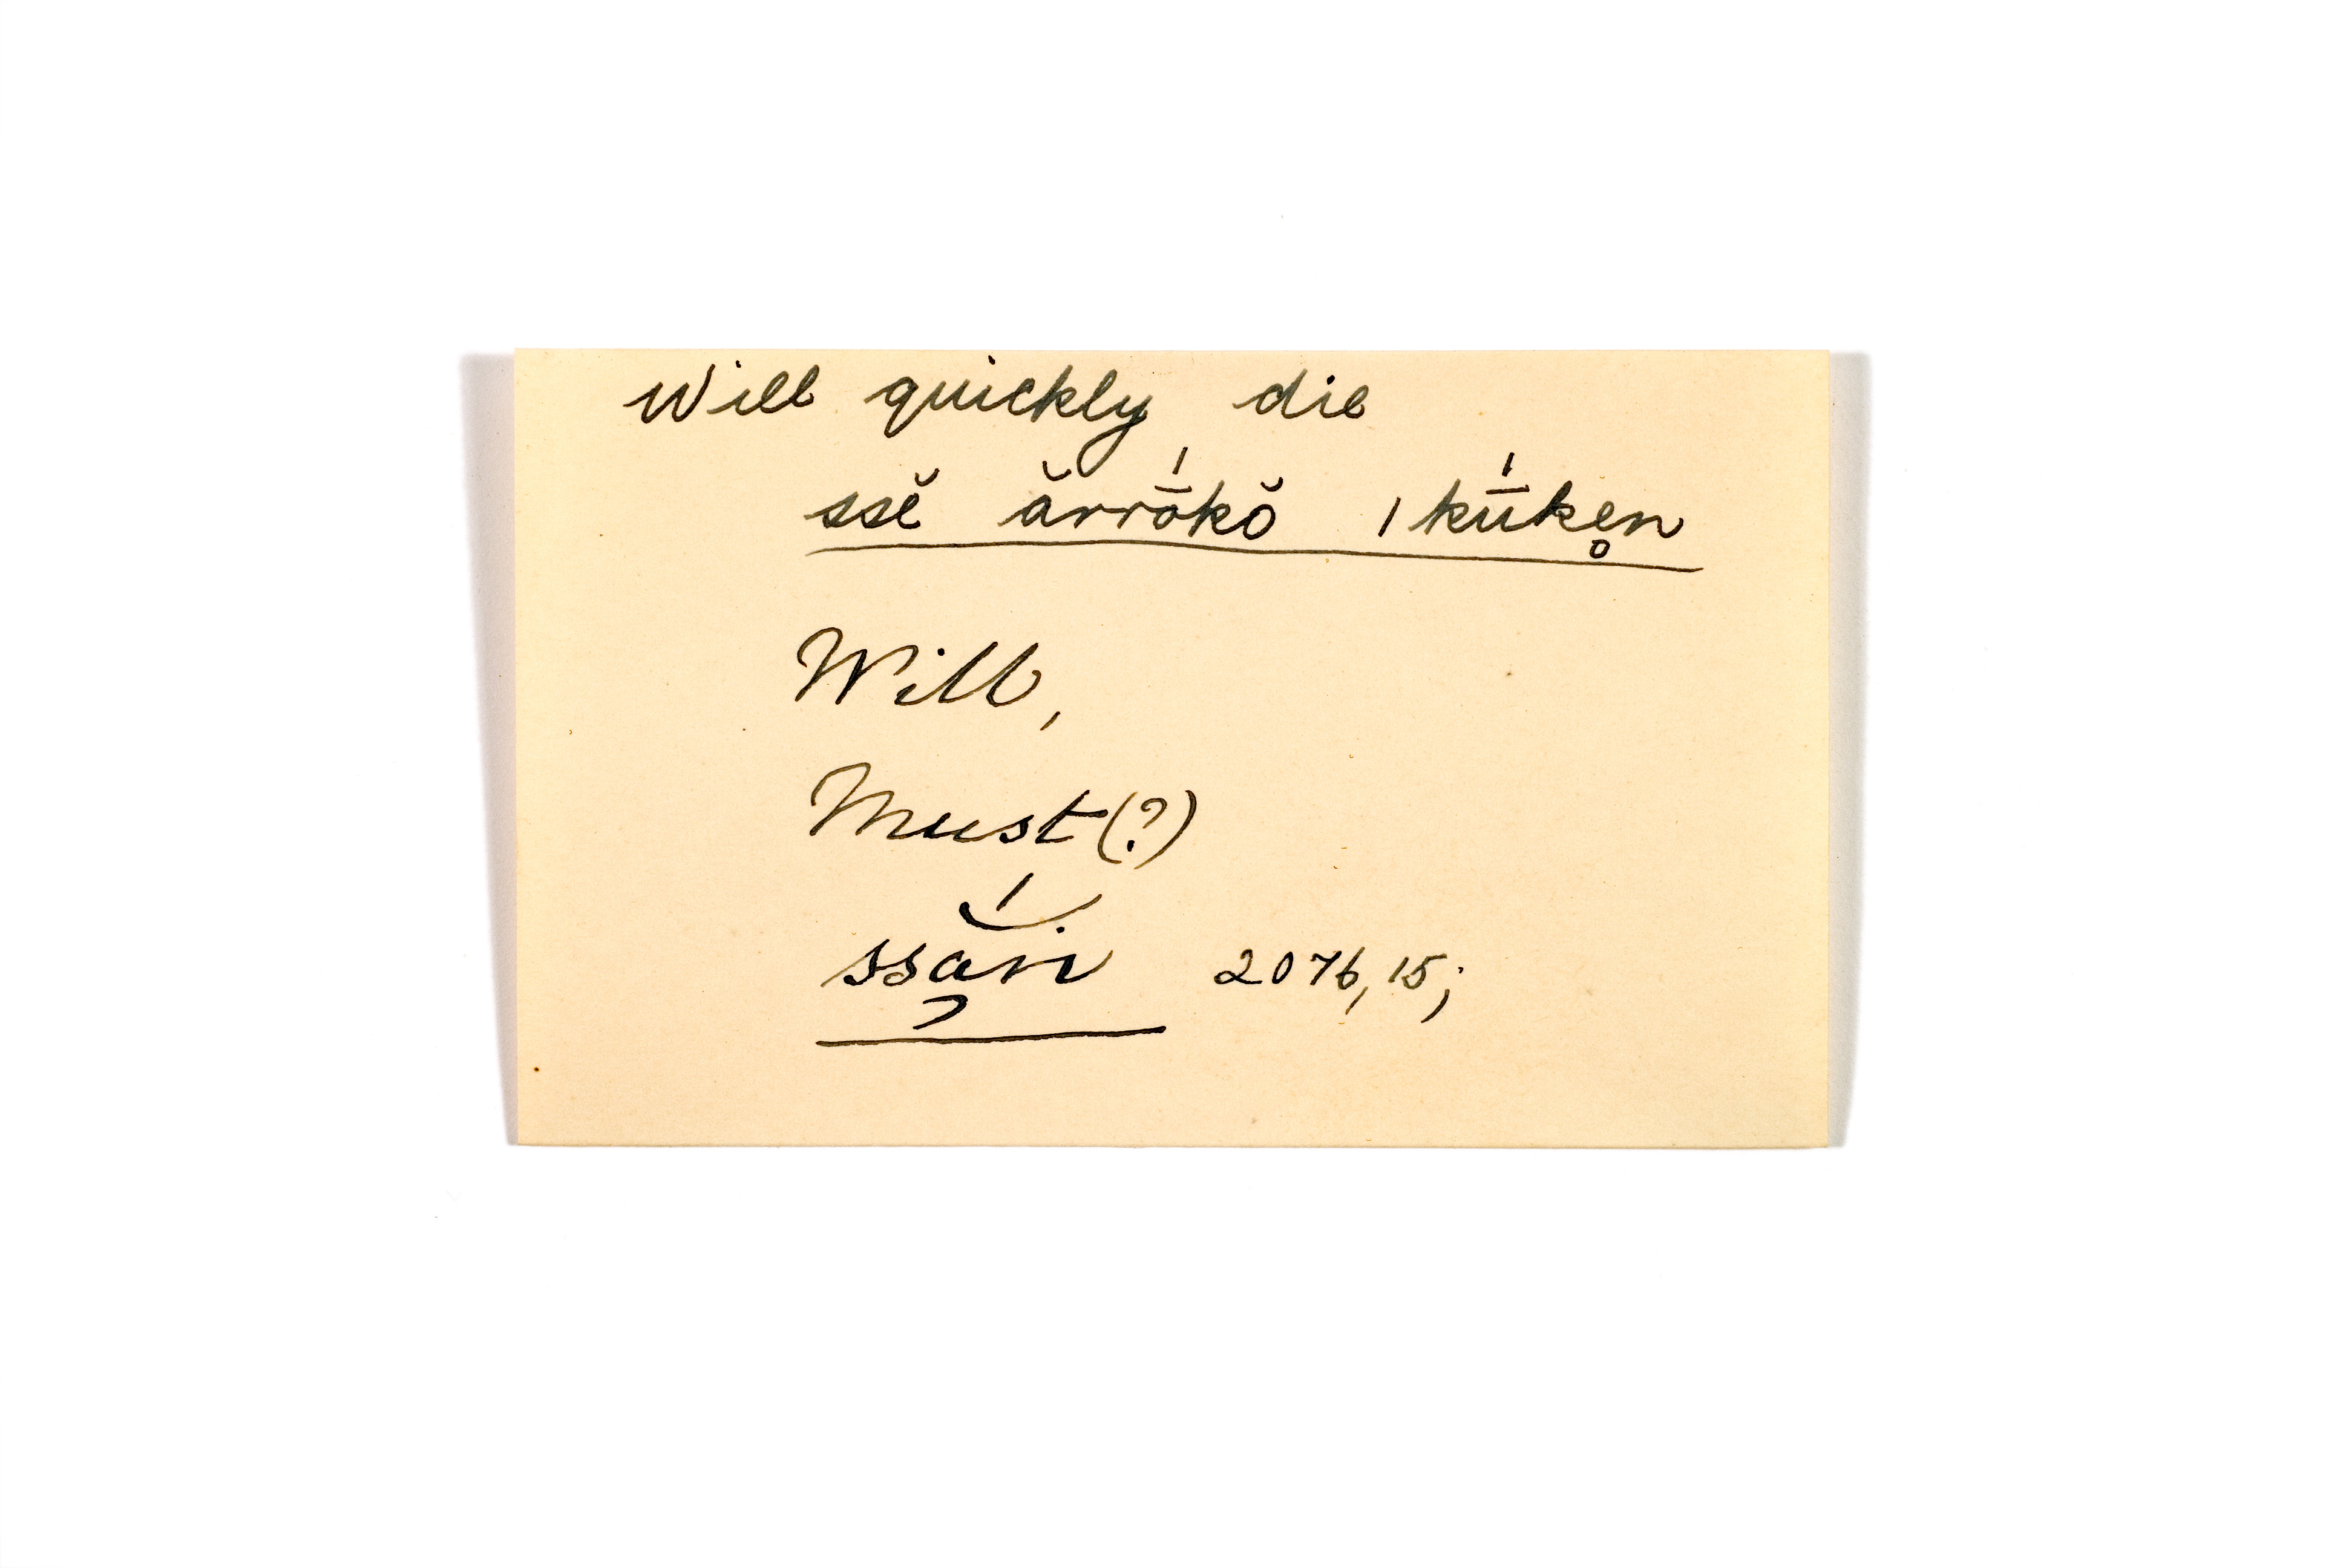 Will quickly die
ssĕ ărrṓkŏ ǀkū́ke̥n
Will,
Must(?)
ssắ̢ṅ 2076, 15;